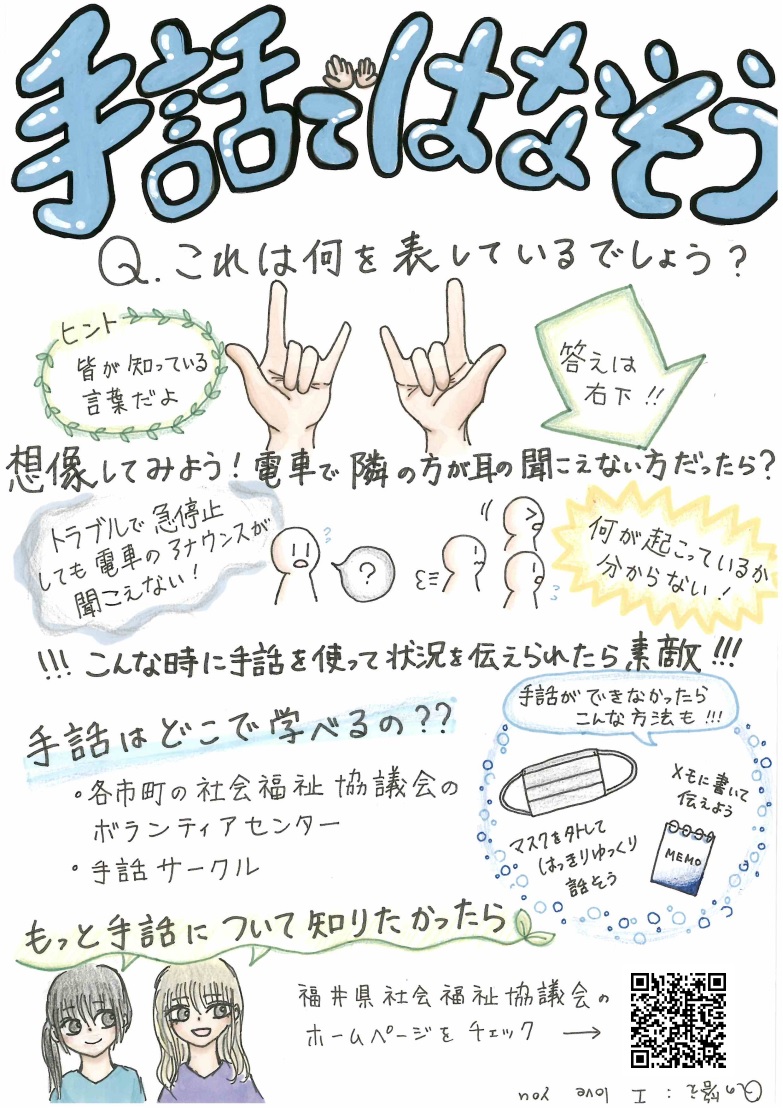 手話ではなそう
Q.これは何を表しているでしょう？
ヒント
皆が知っている
言葉だよ
答えは
右下!!
想像してみよう！電車で隣の方が耳の聞こえない方だったら？
トラブルで急停止
しても電車のアナウンスが
聞こえない！
?
何が起こっているか
分からない！
!!!こんな時に手話を使って状況を伝えられたら素敵!!!
手話はどこで学べるの??
・各市町の社会福祉協議会の
ボランティアセンター
・手話サークル
手話ができなかったら
こんな方法も!!!
マスクを外して
はっきりゆっくり
話そう
メモに書いて
伝えよう
MEMO
もっと手話について知りたかったら
福井県社会福祉協議会の
ホームページをチェック →
Qの答え：I love you